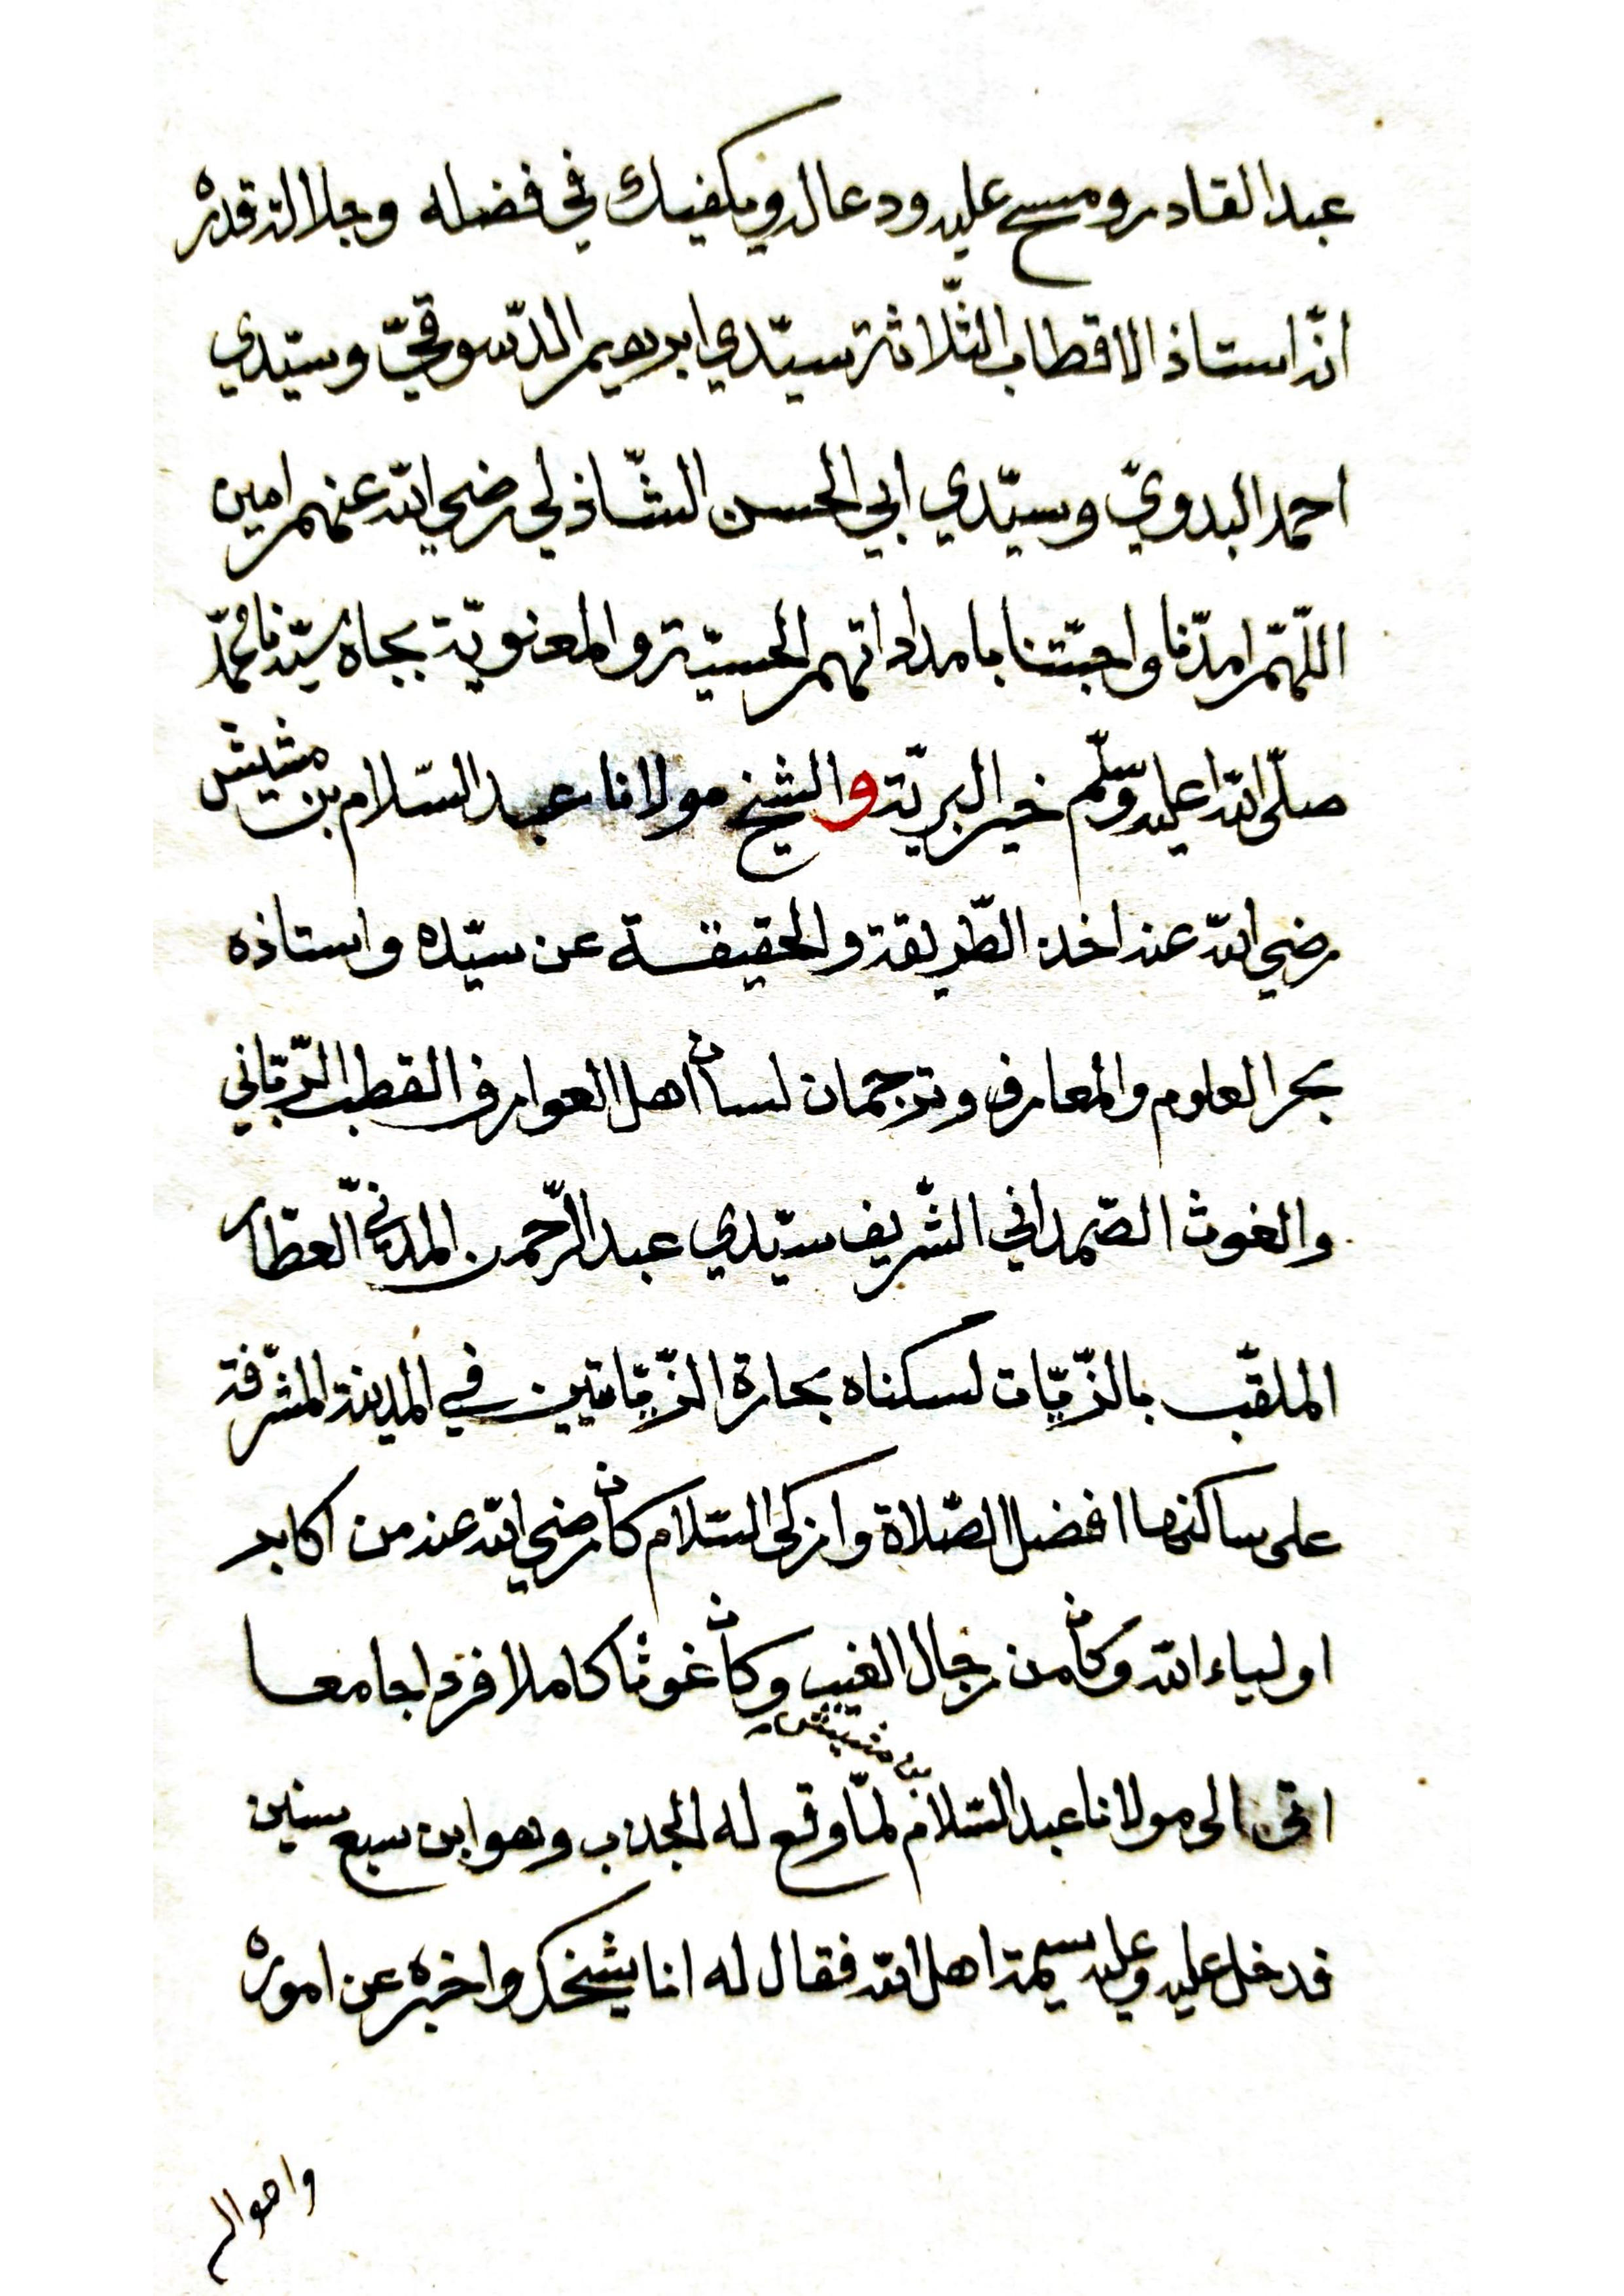 عبد القادر ومسح عليه ودعا له ويكفيك في فضله وجلالة قدره
انّه استاذ الاقطاب الثّلاثة سيّدي ابرهيم الدّسوقيّ وسيّدي
احمد البدويّ وسيّدي ابي الحسن الشّاذلي رضي الله عنهم امين
اللّهمّ امدّنا واحبّتنا بامداداتهم الحسيّة والمعنويّة بجاه سيّدنا محمّد
صلّى الله عليه وسلّم خير البريّة والشيخ مولانا عبد السّلام بن مشيش
رضي الله عنه اخذ الطّريقة والحقيقة عن سيّده واستاذه
بحر العلوم والمعارف وترجمان لسان اهل العوارف القطب الرّبّاني
والغوث الصّمداني الشّريف سيّدي عبد الرّحمن المدنيّ العطّار
الملقّب بالزّيّات لسكناه بحارة الزّيّاتين في المدينة المشرّفة
على ساكنها افضل الصّلاة وازكى السّلام كان رضي الله عنه من اكابر
اولياء الله وكان من رجال الغيب وكان غوثا كاملا فردا جامعا
اتى الى مولانا عبد السّلام بن مشيش لمّا وقع له الجذب وهو ابن سبع سنين
فدخل عليه وعليه سيمة اهل الله فقال له انا شيخك واخبره عن اموره
واحواله